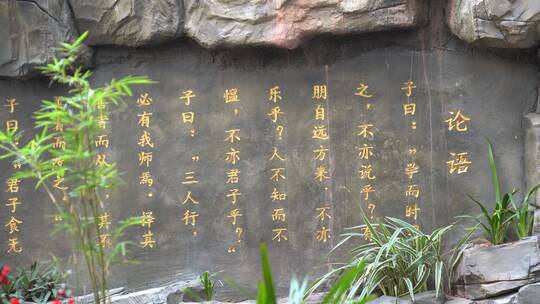 论语
子曰："学而时
之，不亦说乎？
朋自远方来，不亦
乐乎？人不知而不
愠，不亦君子乎？"
子曰："三人行，
必有我师焉。择其
者而从其不
者而之
子曰君子食无